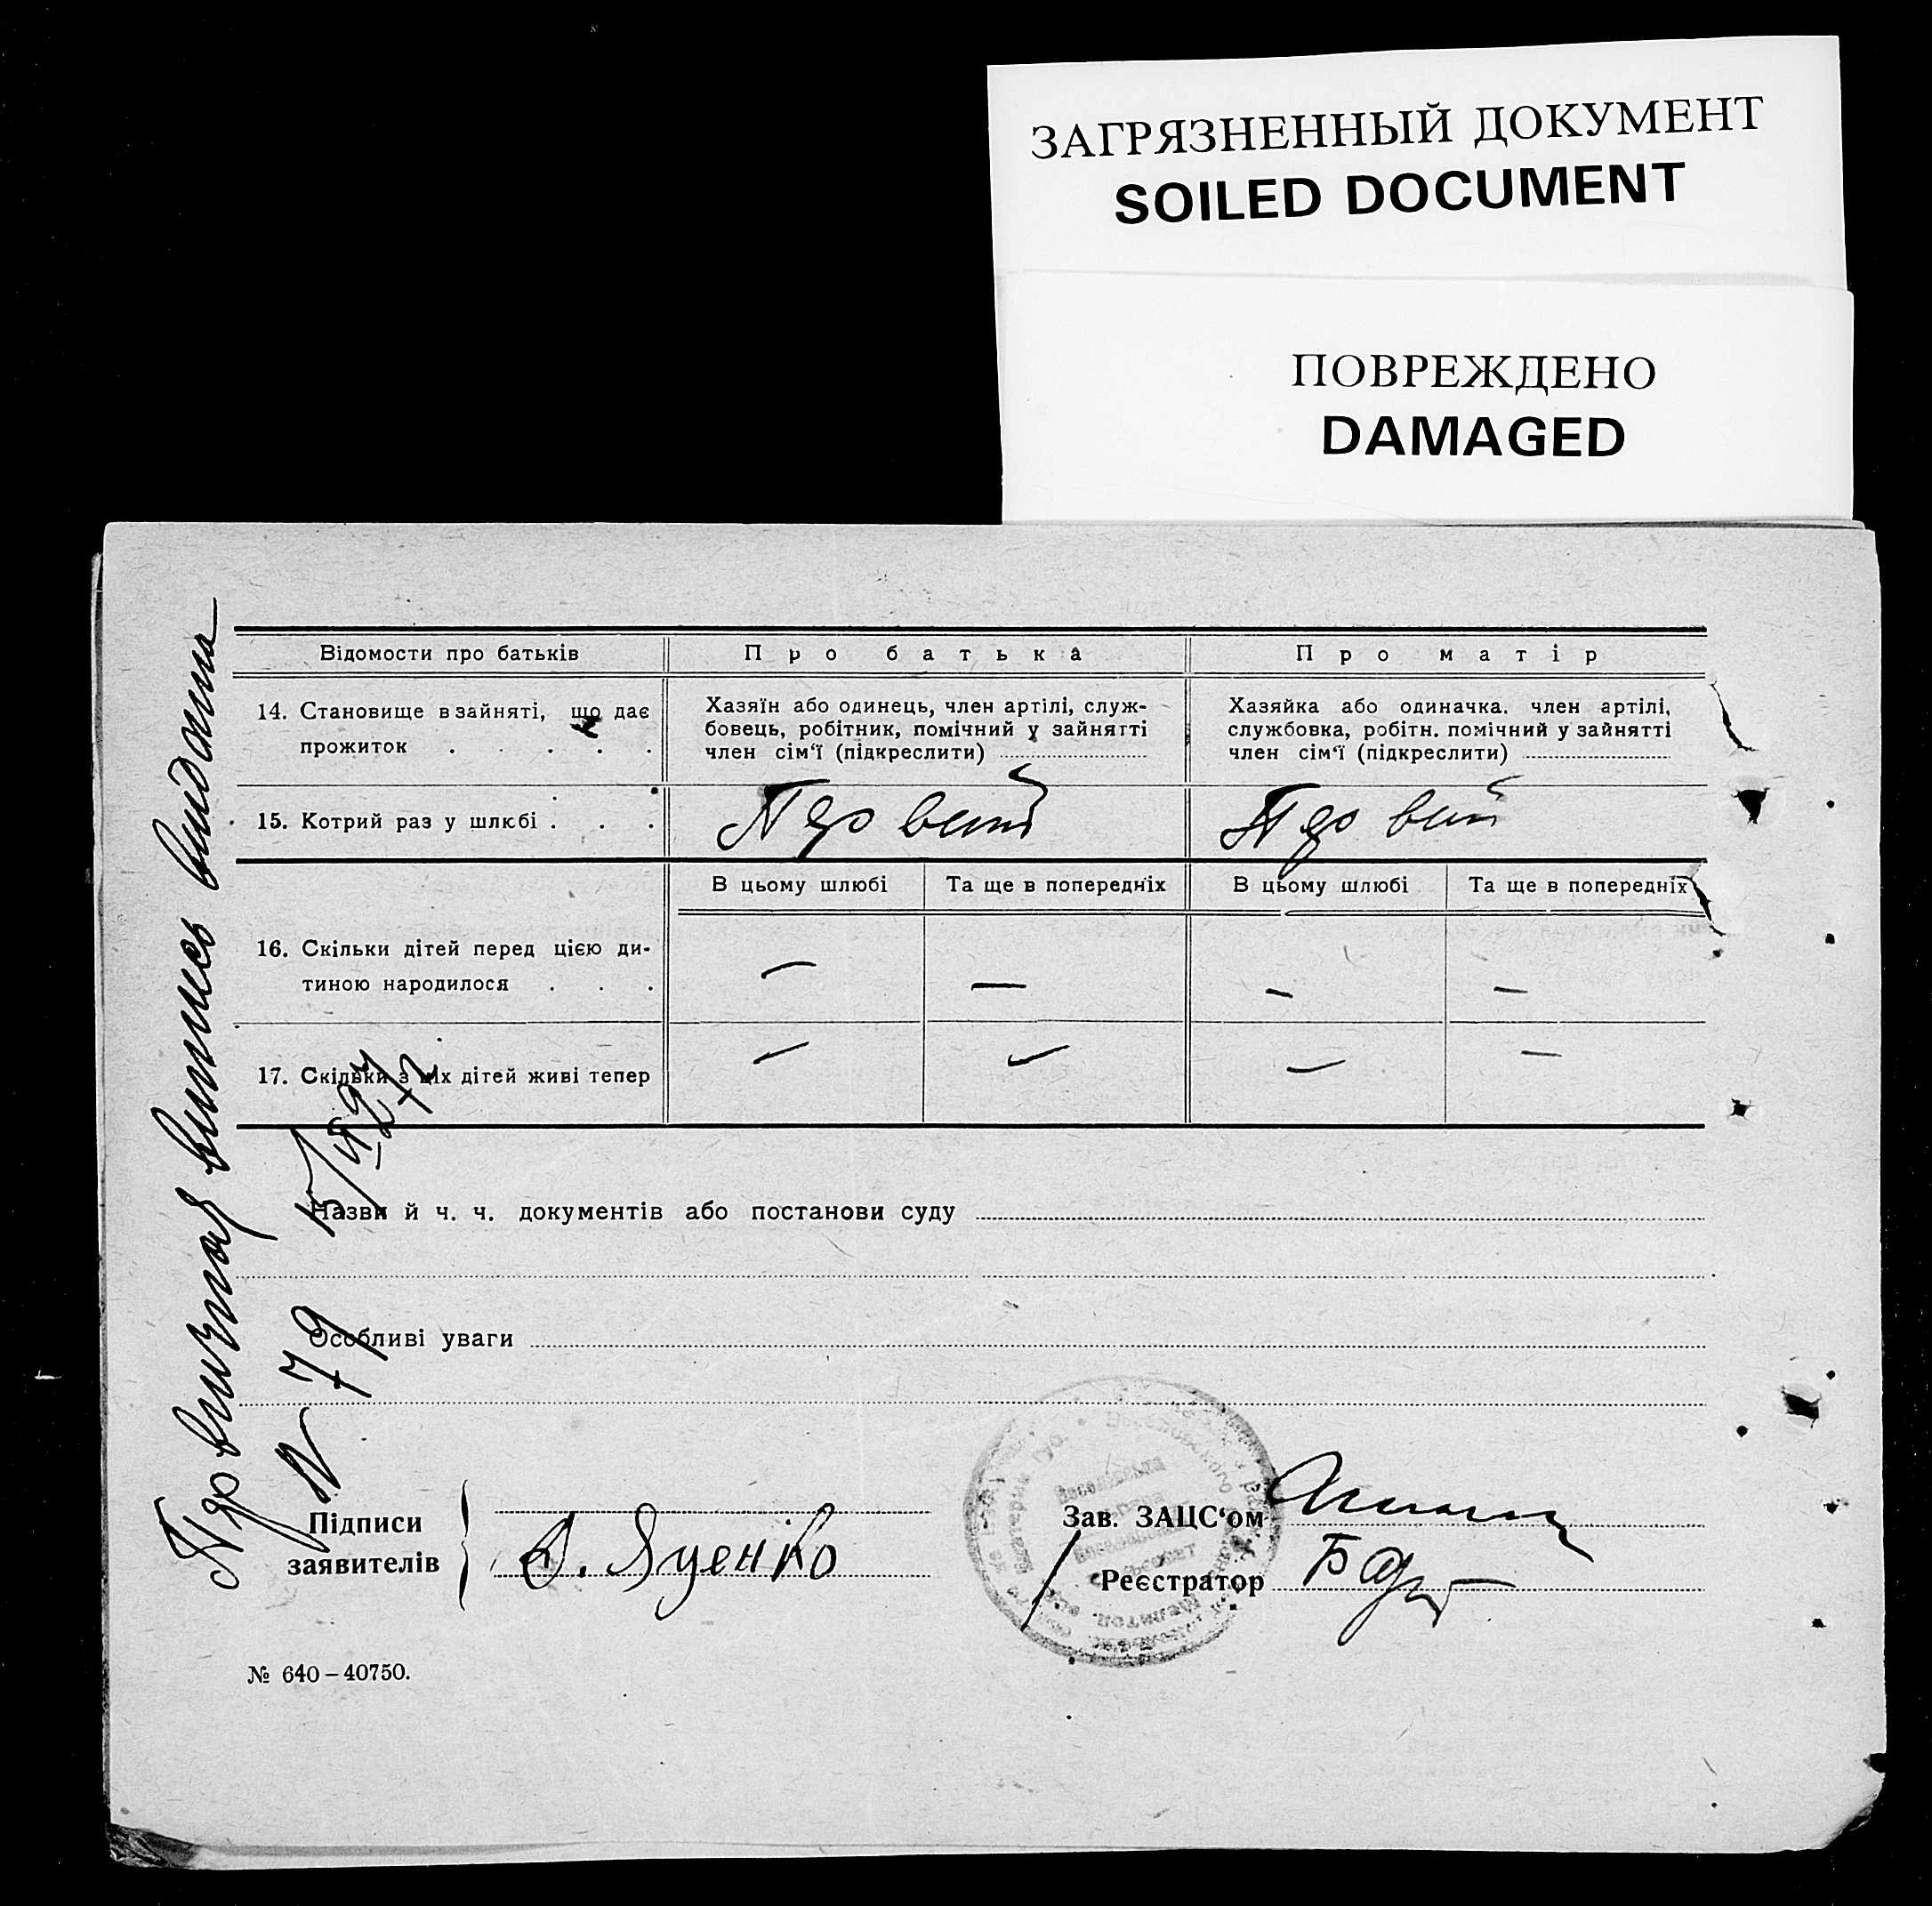 ЗАГРЯЗНЕННЫЙ ДОКУМЕНТ
SOILED DOCUMENT
ПОВРЕЖДЕНО
DAMAGED
Відомости про батьків
Про батька
Про матір
14. Становище в зайняті, що дає
прожиток . . . . .
Хазяїн або одинець, член артілі, служ-
бовець, робітник, помічний у зайнятті
член сім'ї (підкреслити)
Хазяйка або одиначка. член артілі,
службовка, робітн. помічний у зайнятті
член сім'ї (підкреслити)
15. Котрий раз у шлюбі . . .
Первий
Первий
В цьому шлюбі
Та ще в попередніх
В цьому шлюбі
Та ще в попередніх
16. Скільки дітей перед цією ди-
тиною народилося . . .
— — — —
17. Скільки з ціх дітей живі тепер
— — — —
Назви й ч. ч. документів або постанови суду
Особливі уваги
Підписи
заявителів
Яценко
Зав. ЗАЦС'ом
Реєстратор
№ 640–40750.
Первичная выпись выдана
N 79